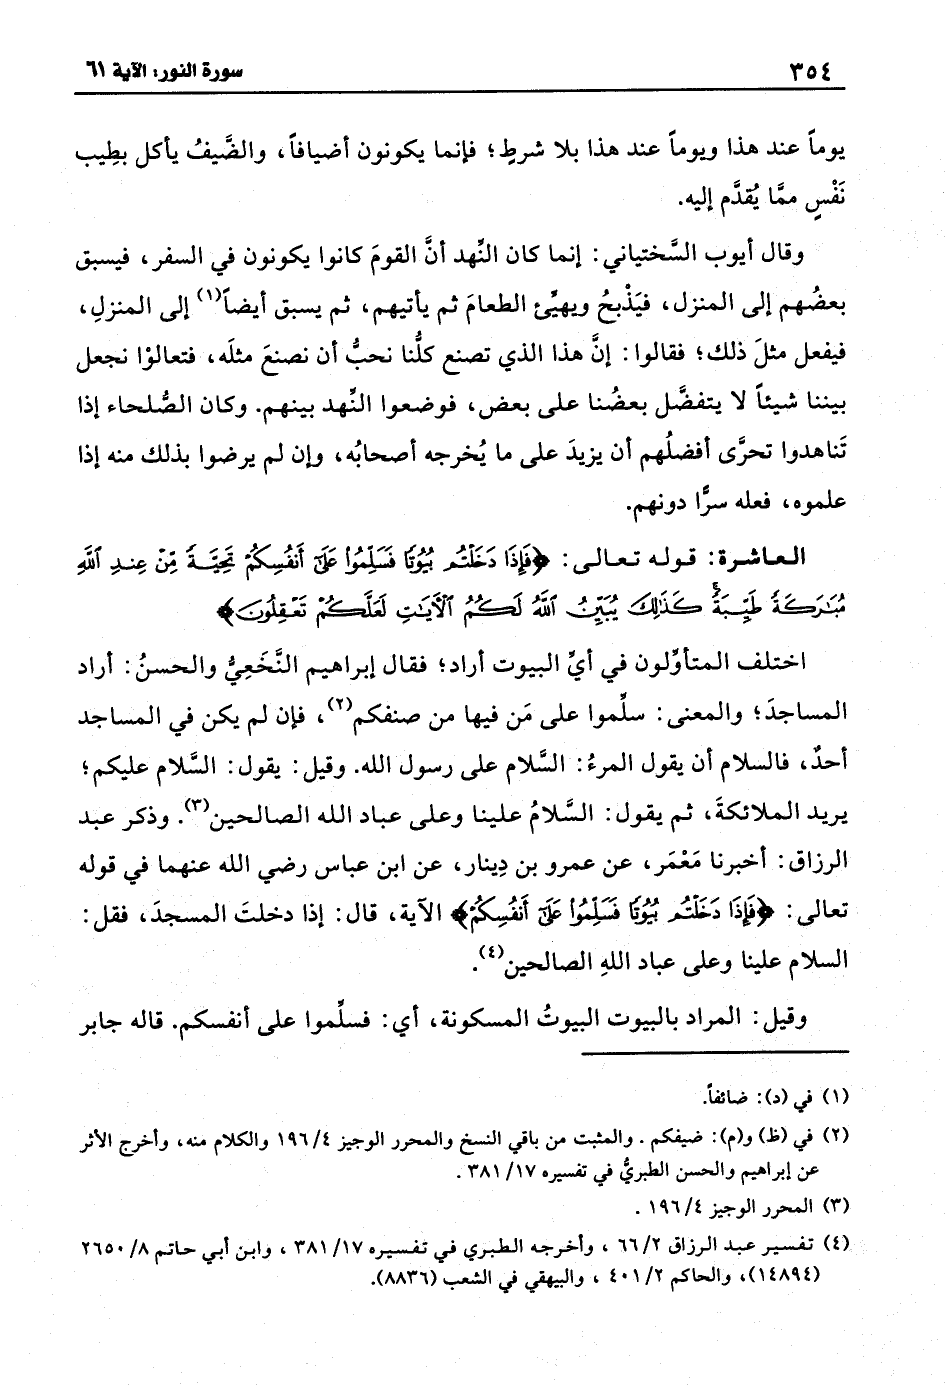 ٣٥٤
سورة النور: الآية ٦١
يوماً عند هذا ويوماً عند هذا بلا شرطٍ؛ فإنما يكونون أضيافاً، والضَّيفُ يأكل بطِيب
نَفْسٍ ممَّا يُقدَّم إليه.
وقال أيوب السَّختياني: إنما كان النِّهد أنَّ القومَ كانوا يكونون في السفر، فيسبق
بعضُهم إلى المنزل، فيَذْبحُ ويهيِّئ الطعامَ ثم يأتيهم، ثم يسبق أيضاً(١) إلى المنزلِ،
فيفعل مثلَ ذلك؛ فقالوا: إنَّ هذا الذي تصنع كلُّنا نحبُّ أن نصنعَ مثلَه، فتعالوْا نجعل
بيننا شيئاً لا يتفضَّل بعضُنا على بعض، فوضعوا النِّهد بينهم. وكان الصُّلحاء إذا
تَناهدوا تحرَّى أفضلُهم أن يزيدَ على ما يُخرجه أصحابُه، وإن لم يرضوا بذلك منه إذا
علموه، فعله سرًّا دونهم.
العاشرة: قوله تعالى: ﴿فَإِذَا دَخَلْتُم بُيُوتًا فَسَلِّمُوا۟ عَلَىٰٓ أَنفُسِكُمْ تَحِيَّةً مِّنْ عِندِ ٱللَّهِ
مُبَٰرَكَةً طَيِّبَةً ۚ كَذَٰلِكَ يُبَيِّنُ ٱللَّهُ لَكُمُ ٱلْـَٔايَٰتِ لَعَلَّكُمْ تَعْقِلُونَ﴾
اختلف المتأوِّلون في أيِّ البيوت أراد؛ فقال إبراهيم النَّخَعِيُّ والحسنُ: أراد
المساجدَ؛ والمعنى: سلِّموا على مَن فيها من صنفكم(٢)، فإن لم يكن في المساجد
أحدٌ، فالسلام أن يقول المرءُ: السَّلام على رسول الله. وقيل: يقول: السَّلام عليكم؛
يريد الملائكةَ، ثم يقول: السَّلامُ علينا وعلى عباد الله الصالحين(٣). وذكر عبد
الرزاق: أخبرنا مَعْمَر، عن عمرو بن دِينار، عن ابن عباس رضي الله عنهما في قوله
تعالى: ﴿فَإِذَا دَخَلْتُم بُيُوتًا فَسَلِّمُوا۟ عَلَىٰٓ أَنفُسِكُمْ﴾ الآية، قال: إذا دخلتَ المسجدَ، فقل:
السلام علينا وعلى عباد اللهِ الصالحين(٤).
وقيل: المراد بالبيوت البيوتُ المسكونة، أي: فسلِّموا على أنفسكم. قاله جابر
(١) في (د): ضائفاً.
(٢) في (ظ) و(م): ضيفكم. والمثبت من باقي النسخ والمحرر الوجيز ١٩٦/٤ والكلام منه، وأخرج الأثر
عن إبراهيم والحسن الطبريُّ في تفسيره ٣٨١/١٧.
(٣) المحرر الوجيز ١٩٦/٤.
(٤) تفسير عبد الرزاق ٦٦/٢، وأخرجه الطبري في تفسيره ٣٨١/١٧، وابن أبي حاتم ٢٦٥٠/٨
(١٤٨٩٤)، والحاكم ٤٠١/٢، والبيهقي في الشعب (٨٨٣٦).